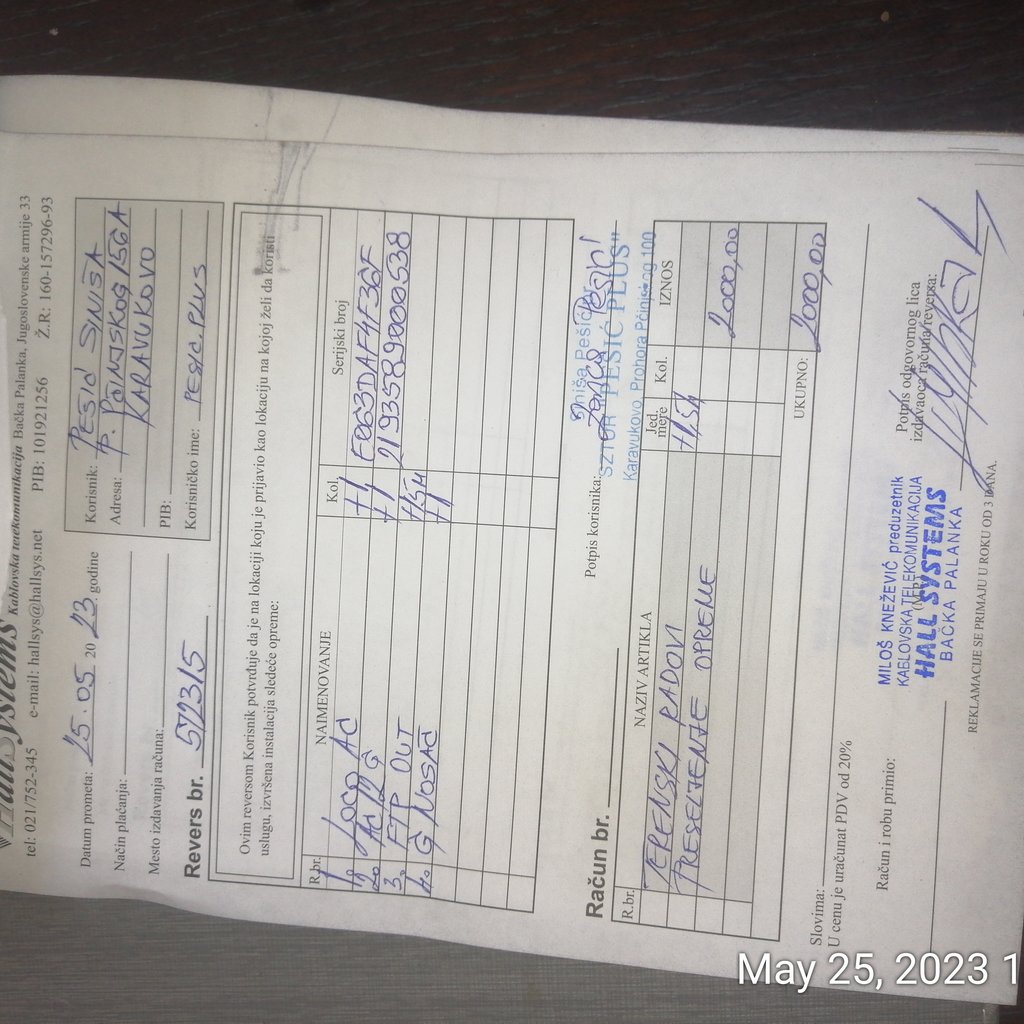 HallSystems Kablovska telekomunikacija Bačka Palanka, Jugoslovenske armije 33
tel: 021/752-345 e-mail: hallsys@hallsys.net PIB: 101921256 Ž.R: 160-157296-93
Datum prometa: 25.05 20 23 godine
Način plaćanja:
Mesto izdavanja računa:
Revers br. 5723/5
Korisnik: PEŠIĆ SINIŠA
Adresa: P. PČINJSKOG 156A
KARAVUKOVO
PIB:
Korisničko ime: PESIC.PLUS
Ovim reversom Korisnik potvrđuje da je na lokaciji koju je prijavio kao lokaciju na kojoj želi da koristi
uslugu, izvršena instalacija sledeće opreme:
R.br. NAIMENOVANJE Kol. Serijski broj
1. LOCO AC 1/ E063DAF4F3CF
2. AC 12 G 1/ 2193589000538
3. FTP OUT 15M
4. G NOSAČ 1/
Potpis korisnika:
Siniša Pešić pr
SZTUR "PEŠIĆ PLUS"
Karavukovo Prohora Pčinjskog 100
Račun br.
R.br. NAZIV ARTIKLA Jed. mere Kol. IZNOS
TERENSKI RADOVI
PRESELJENJE OPREME 2000,00
UKUPNO: 2000,00
Slovima:
U cenu je uračunat PDV od 20%
Račun i robu primio:
Potpis odgovornog lica
izdavaoca računa/reversa:
(M.P.)
MILOŠ KNEŽEVIĆ preduzetnik
KABLOVSKA TELEKOMUNIKACIJA
HALL SYSTEMS
BAČKA PALANKA
REKLAMACIJE SE PRIMAJU U ROKU OD 3 DANA.
May 25, 2023 1